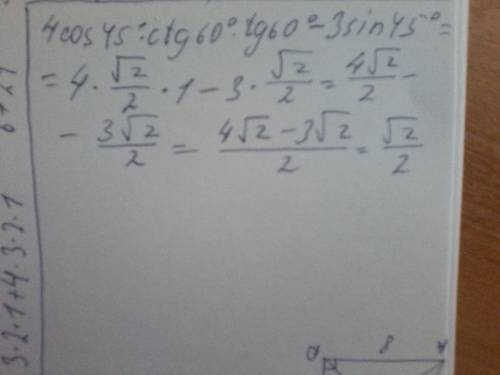 4cos45°·ctg60°·tg60°-3sin45°=
= 4 · √2/2 · 1 - 3 · √2/2 = 4√2/2 -
- 3√2/2 = (4√2 - 3√2)/2 = √2/2
3·2·1+4·3·2·1
8